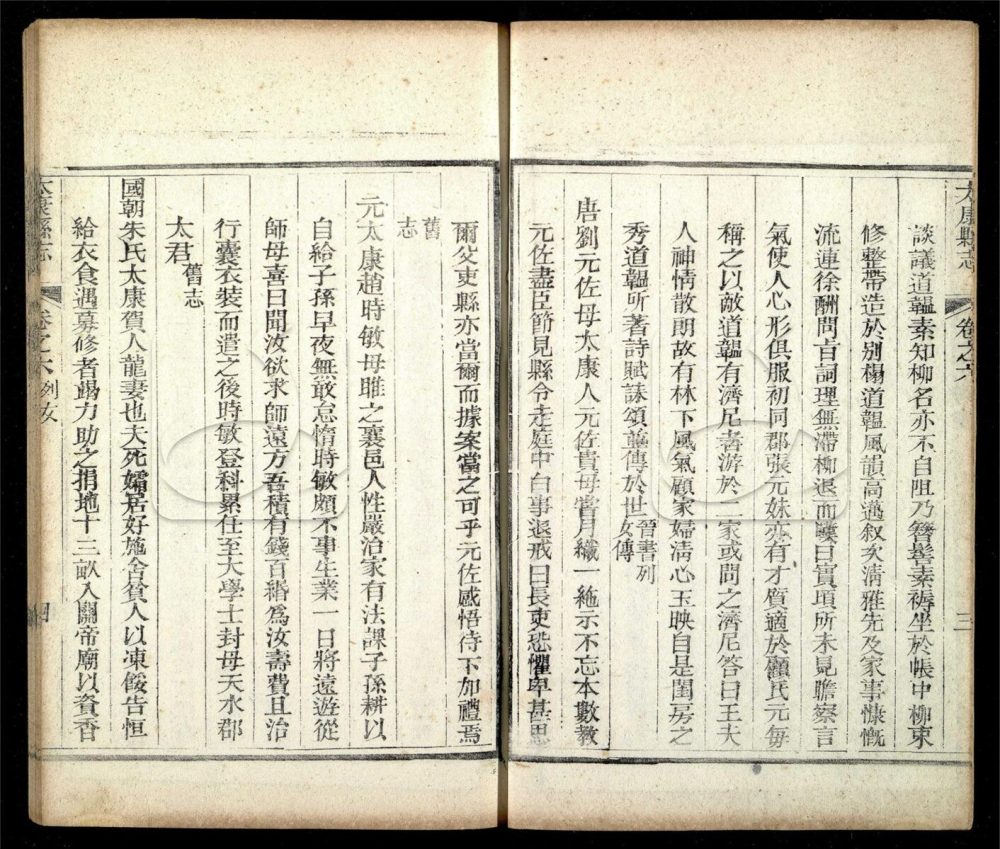 太康縣志
卷之六
三
談議道韞素知柳名亦不自阻乃簪髻素褥坐於帳中柳束
修整帶造於別榻道韞風韻高邁叙致清雅先及家事慷慨
流漣徐酬問旨詞理無滯柳退而歎曰實頃所未見瞻察言
氣使人心形俱服初同郡張元妹亦有才質適於顧氏元每
稱之以敵道韞有濟尼者游於二家或問之濟尼答曰王夫
人神情散朗故有林下風氣顧家婦清心玉映自是閨房之
秀道韞所著詩賦誄頌並傳於世晉書列
女傳
唐劉元佐母太康人元佐貴母嘗月織一絁示不忘本數教
元佐盡臣節見縣令走庭中白事退戒曰長吏恐懼卑甚思
爾父吏縣亦當爾而據案當之可乎元佐感悟待下加禮焉
舊
志
元太康趙時敏母睢之襄邑人性嚴治家有法課子孫耕以
自給子孫早夜無敢怠惰時敏頗不事生業一日將遠遊從
師母喜曰聞汝欲求師遠方吾積有錢百緡為汝壽費且治
行囊衣裝而遣之後時敏登科累任至大學士封母天水郡
太君舊志
國朝朱氏太康賀人龍妻也夫死孀居好施舍貧人以凍餒告恒
給衣食遇募修者竭力助之捐地十三畝入關帝廟以資香
太康縣志
卷之六列女
四